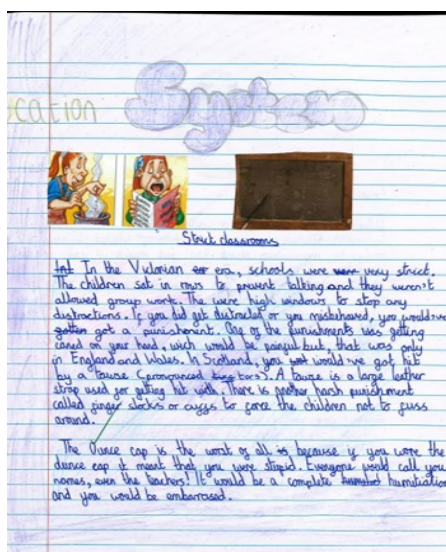 cation System
Strict classrooms
Int In the Victorian er era, schools were were very strict.
The children sat in rows to prevent talking and they weren't
allowed group work. The were high windows to stop any
distractions. If you did get distracted or you misbehaved, you would've
gotten got a punishment. One of the punishments was getting
caned on your hand, wich would be painful but, that was only
in England and Wales. In Scotland, you would've got hit
by a tawse (pronounced taws). A tawse is a large leather
strap used for getting hit with. There is another harsh punishment
called finger stocks or cuffs to force the children not to fuss
around.
The Dunce cap is the worst of all is because if you wore the
dunce cap it meant that you were stupid. Everyone would call you
names, even the teachers! It would be a complete humiliation
and you would be embarrased.